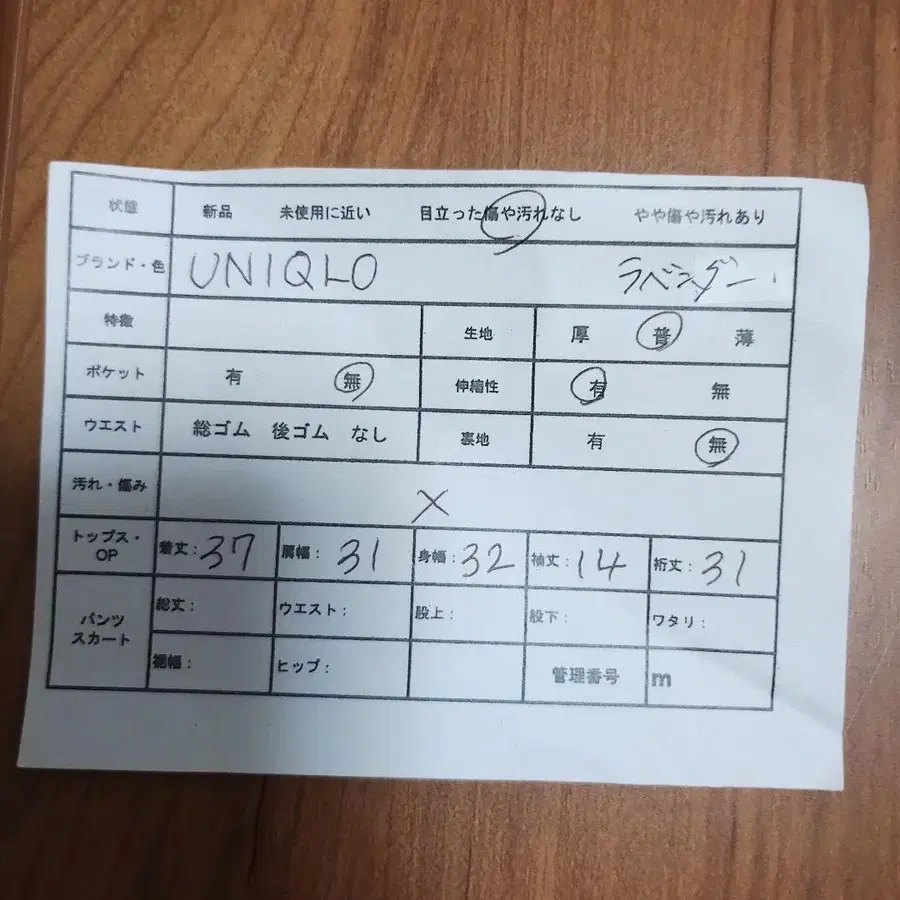 状態 新品 未使用に近い 目立った傷や汚れなし やや傷や汚れあり
ブランド・色 UNIQLO ラベンダー
特徴 生地 厚 普 薄
ポケット 有 無 伸縮性 有 無
ウエスト 総ゴム 後ゴム なし 裏地 有 無
汚れ・傷み ×
トップス・OP 着丈:37 肩幅:31 身幅:32 袖丈:14 裄丈:31
パンツ スカート 総丈: ウエスト: 股上: 股下: ワタリ:
裾幅: ヒップ: 管理番号 m